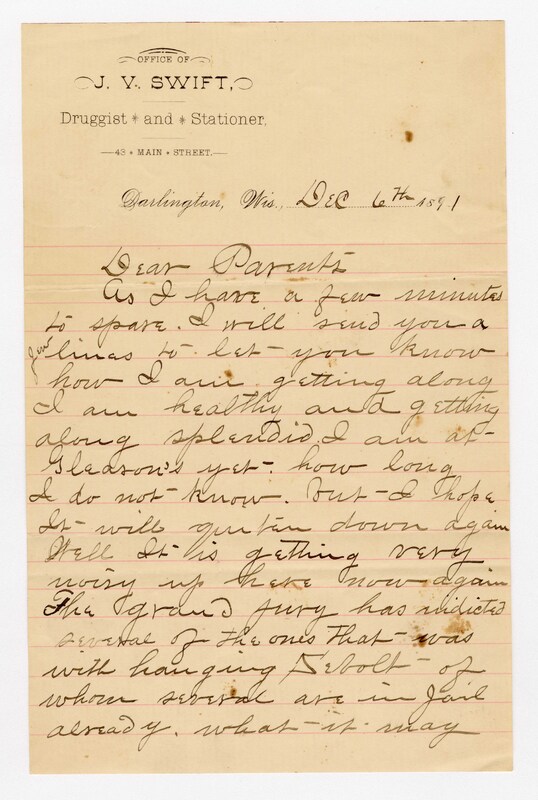 OFFICE OF
J. V. SWIFT,
Druggist * and * Stationer,
43 * MAIN * STREET.
Darlington, Wis., DEC 6th 1891
Dear Parents
As I have a few minutes
to spare. I will send you a
few lines to let you know
how I am getting along
I am healthy and getting
along splendid. I am at
Gleason's yet. how long
I do not know. But I hope
It will quiten down again
Well It is getting very
noisy up here now again
The grand jury has indicted
several of the ones that was
with hanging Sebolt of
whom several are in Jail
already. what it may